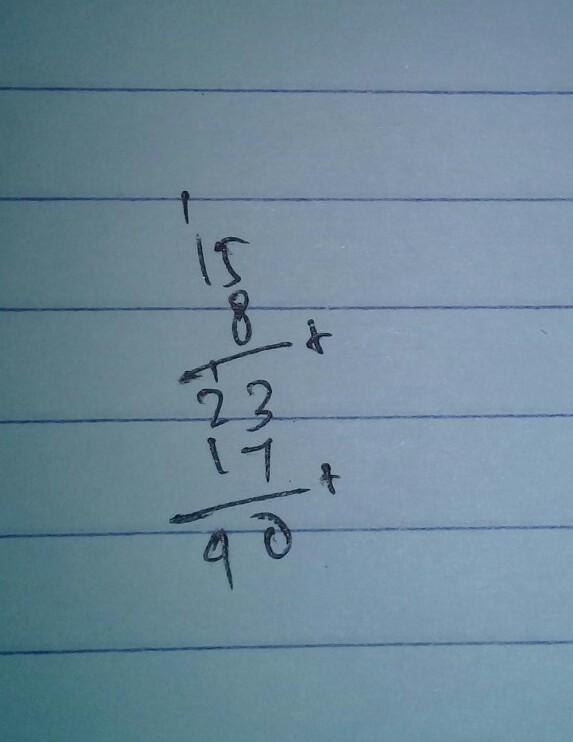 1
15
8 +
23
17 +
90